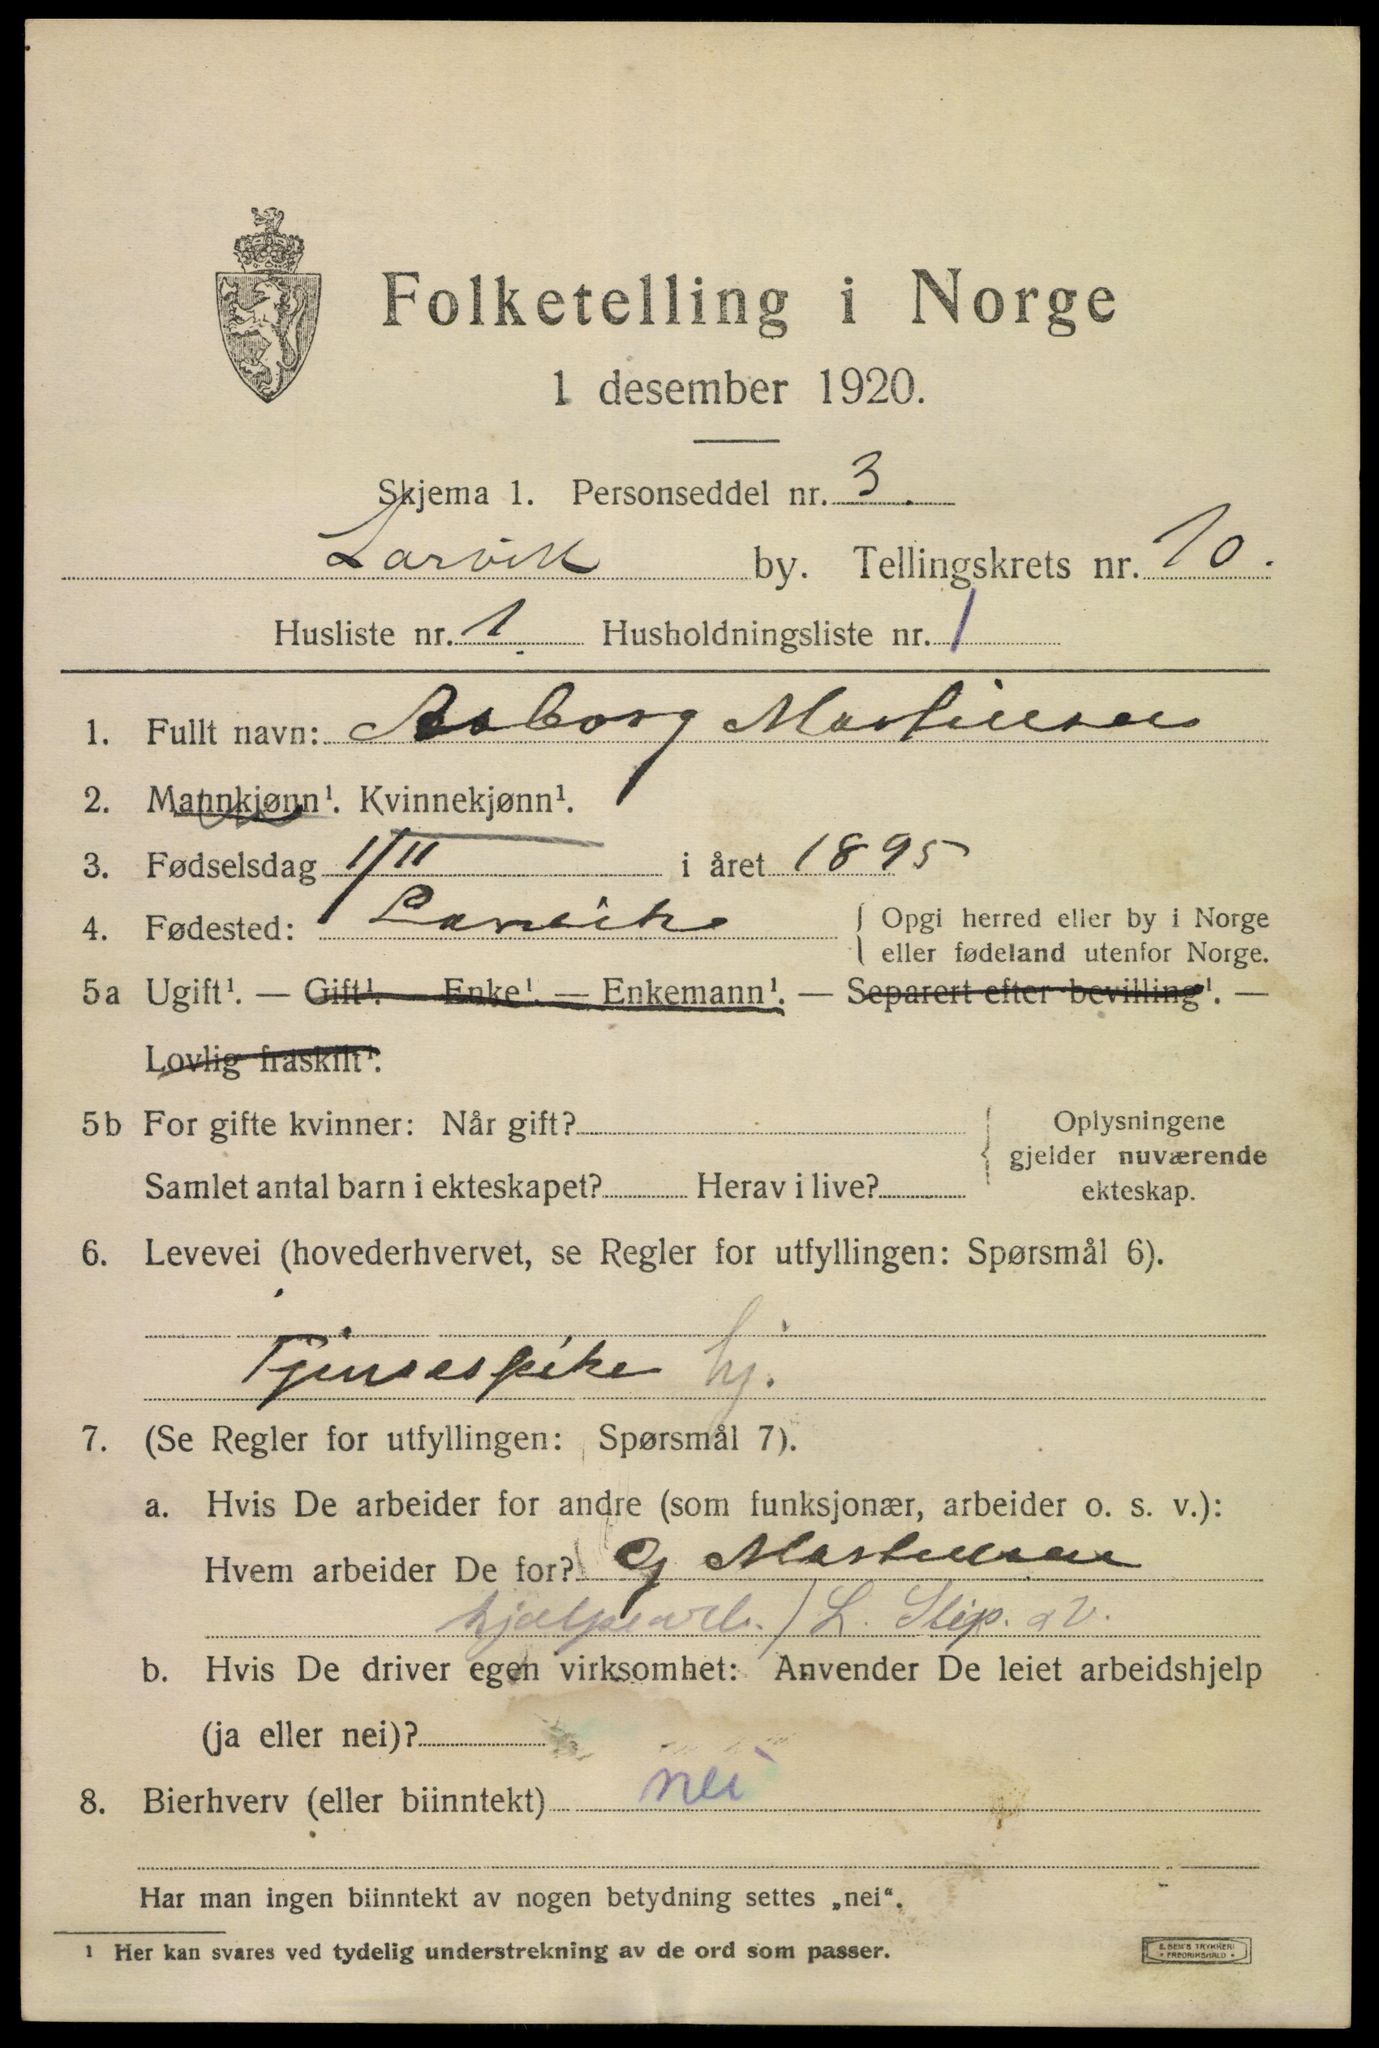 Folketelling i Norge
1 desember 1920.
Skjema 1. Personseddel nr. 3.
Larvik by. Tellingskrets nr. 10.
Husliste nr. 1 Husholdningsliste nr. 1
1. Fullt navn: Aasborg Martinsen
2. Mannkjønn¹. Kvinnekjønn¹.
3. Fødselsdag 1/11 i året 1895
4. Fødested: Larvik { Opgi herred eller by i Norge
eller fødeland utenfor Norge.
5a Ugift¹. — Gift¹. — Enke¹. — Enkemann¹. — Separert efter bevilling¹. —
Lovlig fraskilt¹.
5b For gifte kvinner: Når gift? { Oplysningene
gjelder nuværende
Samlet antal barn i ekteskapet? Herav i live? ekteskap.
6. Levevei (hovederhvervet, se Regler for utfyllingen: Spørsmål 6).
Tjenespike hj.
7. (Se Regler for utfyllingen: Spørsmål 7).
a. Hvis De arbeider for andre (som funksjonær, arbeider o. s. v.):
Hvem arbeider De for? G Martinsen
hjælpearb. / L. Slip. av.
b. Hvis De driver egen virksomhet: Anvender De leiet arbeidshjelp
(ja eller nei)?
8. Bierhverv (eller biinntekt) nei
Har man ingen biinntekt av nogen betydning settes „nei“.
¹ Her kan svares ved tydelig understrekning av de ord som passer.
E. SEM'S TRYKKERI
• FREDRIKSHALD •